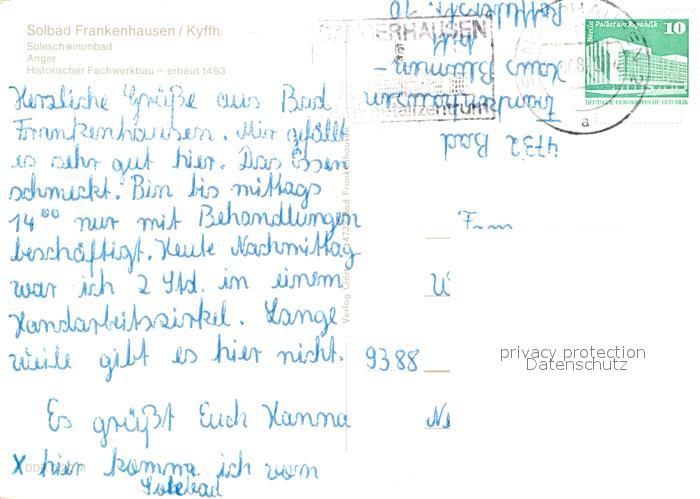 Solbad Frankenhausen / Kyffh.
Soleschwimmbad
Anger
Historischer Fachwerkbau – erbaut 1493
Herzliche Grüße aus Bad
Frankenhausen. Mir gefällt
es sehr gut hier. Das Essen
schmeckt. Bin bis mittags
14⁰⁰ nur mit Behandlungen
beschäftigt. Heute Nachmittag
war ich 2 Std. in einem
Handarbeitszirkel. Lange
weile gibt es hier nicht.
Es grüßt Euch Hanna
X hier komme ich vom
Solebad
SANGERHAUSEN
Palast der Republik
10
DEUTSCHE DEMOKRATISCHE REPUBLIK
a
4732 Bad
Frankenhausen
Haus Blumen-
10
Fam
9388
privacy protection
Datenschutz